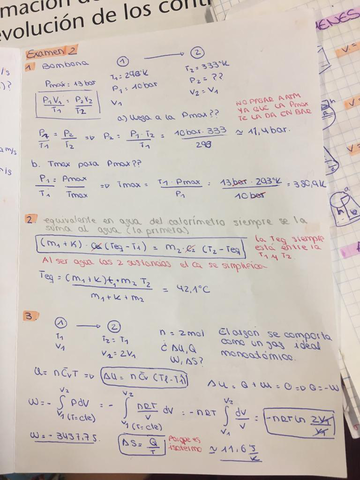 mación de
evolución de los cont
Examen 2
1 Bombona
1 → 2
Pmax = 13 bar
T1 = 298K T2 = 333K
P1 = 10bar P2 = ??
V1 V2 = V1
P1 V1 / T1 = P2 V2 / T2
a) llega a la Pmax??
NO PASAR A ATM
YA QUE LA Pmax
TE LA DA EN BAR
P1/T1 = P2/T2 => P2 = P1 · T2 / T1 = 10 bar · 333 / 298 ≈ 11,4 bar.
b. Tmax para Pmax??
P1/T1 = Pmax/Tmax => Tmax = T1 · Pmax / P1 = 13 bar · 293K / 10 bar = 380,9K
2 equivalente en agua del calorímetro siempre se la
suma al agua (la primera)
(m1 + K) · Ce (Teq - T1) = m2 · Ce (T2 - Teq)
la Teq siempre
esta entre la
T1 y T2
Al ser agua las 2 sustancias el Ce se simplifica
Teq = (m1 + K) t1 + m2 T2 / m1 + K + m2 = 42,1°C
3.
1 → 2
T1 T2 = T1
V1 V2 = 2V1
n = 2 mol
¿ ΔU, Q
W, ΔS?
El argon se comporta
como un gas ideal
monoatómico.
U = n Cv T => ΔU = n Cv (T2 - T1)
ΔU = Q + W = 0 => Q = -W
W = - ∫ P dV = - ∫ nRT / V dV = -nRT ∫ dV / V = -nRT ln 2V1 / V1
V1 (T=cte)
W = -3437,75.
ΔS = Q / T
Porque es
isotermo
≈ 11,5 J / K